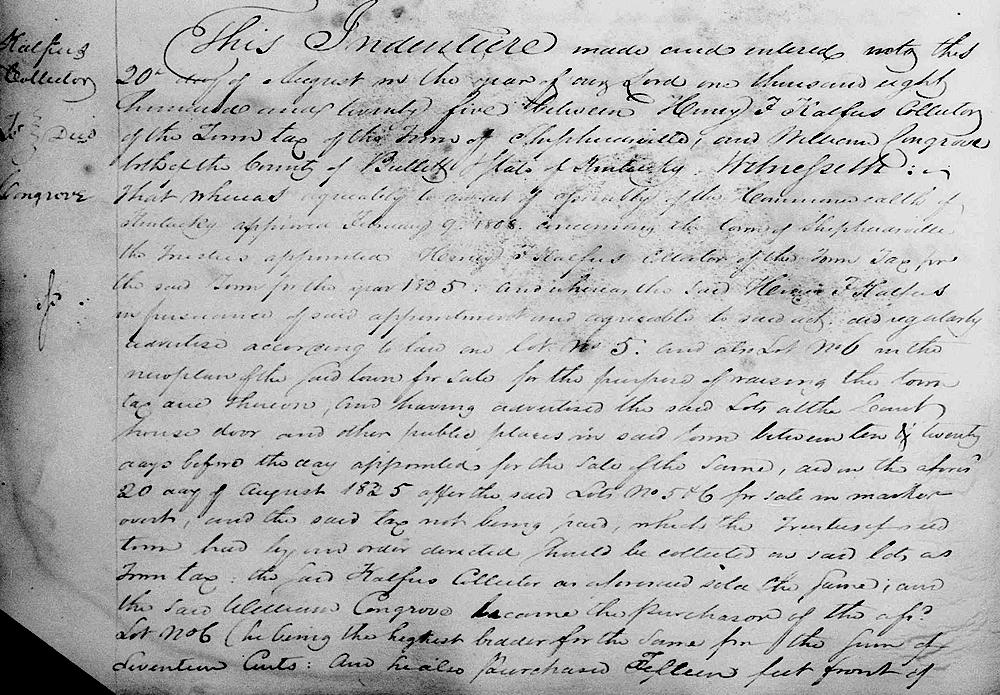 Halfus
Collector
To } Deed
Congrove
This Indenture made and entered into this
20th day of August in the year of our Lord one thousand eight
hundred and twenty five between Henry F Halfus Collector
of the Town tax of the Town of Shepherdsville, and William Congrove
both of the County of Bullitt & State of Kentucky. Witnesseth:
that whereas agreeably to an act of assembly of the Commonwealth of
Kentucky approved February 9. 1808. concerning the town of Shepherdsville
the Trustees appointed Henry F Halfus Collector of the Town Tax, for
the said Town for the year 1825: And whereas, the said Henry F Halfus
in pursuance of said appointment and agreeable to said act. did regularly
advertise according to law one lot. No 5. and also Lot No 6 in the
new plan of the said town for sale for the purpose of raising the town
tax due thereon, And having advertised the said Lots at the Court
house door and other public places in said town between ten & twenty
days before the day appointed for the sale of the same, did on the afores
20 day of August 1825 offer the said Lots No 5 & 6 for sale in market
overt, and the said tax not being paid, which the Trustees of said
town had by an order directed should be collected on said lots as
Town tax: the said Halfus Collector as aforesaid sold the same; and
the said William Congrove became the purchasor of the afsd
Lot No 6 (he being the highest bidder for the same for the sum of
Seventeen Cents: And he also purchased Fifteen feet front of